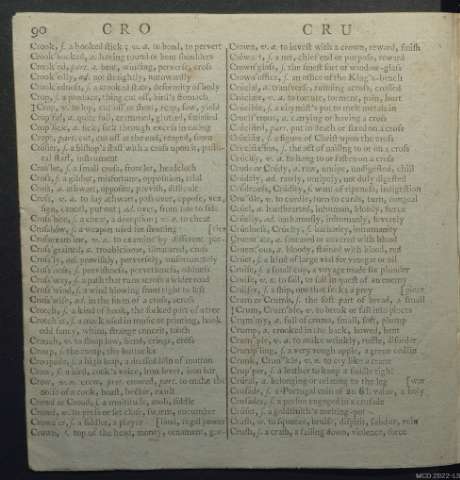 90 CRO CRU
Crook, s. a hooked stick; v. a. to bend, to pervert
Crook'backed, a. having round or bent shoulders
Crook'ed, part. a. bent, winding, perverse, cross
Crook'edly, ad. not straightly, untowardly
Crook'edness, s. a crooked state, deformity of body
Crop, s. a produce, thing cut off, bird's stomach
Crop, v. a. to lop, cut off or short, reap, sow, yield
Crop'ful, a. quite full, crammed, glutted, satisfied
Crop'sick, a. sick, sick through excess in eating
Cropt, part. cut, cut off at the end, reaped
Crosier, s. a bishop's staff with a cross upon it, pastoral staff, instrument
Cros'let, s. a small cross, frontlet, headcloth
Cross, s. a gibbet, misfortune, opposition, trial
Cross, a. athwart, opposite, peevish, difficult
Cross, v. a. to lay athwart, pass over, oppose, vex,
sign, cancel, put out; ad. over, from side to side
Cross'bite, s. a cheat, a deception; v. a. to cheat
Cross'bow, s. a weapon used for shooting
Cross'grained, a. troublesome, illnatured, cross
Cross'ly, ad. peevishly, perversely, unfortunately
Cross'ness, s. peevishness, perverseness, oddness
Cross'way, s. a path that runs across a wider road
Cross'wind, s. a wind blowing from right to left
Cross'wise, ad. in the form of a cross, across
Crotch, s. a kind of hook, the forked part of a tree
Crotch'et, s. a mark used in music or printing, hook
odd fancy, whim, strange conceit, touch
Crouch, v. to stoop low, bend, cringe, cross
Croup, s. the rump, the buttocks
Crow, s. a bird, cock's voice, iron lever, iron bar
Crow, v. n. crew, pret. crowed, part. to make the
noise of a cock, boast, bluster, vault
Crowd, s. a multitude, mob, fiddle
Crowd, v. to press or set close, swarm, encumber
Crowd'er, s. a fiddler, a player [land, regal power
Crown, s. top of the head, money, ornament, gar-
Crown, v. a. to invest with a crown, reward, finish
Crown'glass, s. the finest sort of window-glass
Crown'office, s. an office of the King's-bench
Crucial, a. transverse, running across, crossed
Cruciate, v. a. to torture, torment, pain, hurt
Crucible, s. a chymist's pot to melt metals in
Crucif'erous, a. carrying or having a cross
Crucified, part. put to death or fixed on a cross
Crucifix, s. a figure of Christ upon the cross
Crucifixion, s. the act of nailing to or on a cross
Crucify, v. a. to hang to or fasten on a cross
Crude or Crudy, a. raw, unripe, undigested, chill
Crudely, ad. rawly, unripely, not duly digested
Crudeness, Crudity, s. want of ripeness, indigestion
Crud'dle, v. to curdle, turn to curds, turn, congeal
Cruel, a. hardhearted, inhuman, bloody, fierce
Cruelly, ad. inhumanly, inhumanly, severely
Cruelness, Cruelty, s. barbarity, inhumanity
Cruentate, a. smeared or covered with blood
Cruentous, a. bloody, stained with blood, red
Cruet, s. a kind of large vial for vinegar or oil
Cruise, s. a small cup, a voyage made for plunder
Cruise, v. n. to sail, to sail in quest of an enemy
Cruiser, s. a ship, one that seeks a prey
Crum or Crumb, s. the soft part of bread, a small
Crum, Crum'ble, v. to break or fall into pieces
Crum'my, a. full of crums, small, soft, plump
Crump, a. crooked in the back, bowed, bent
Crum'ple, v. a. to make wrinkly, ruffle, disorder
Crump'ling, s. a very rough apple, a green codlin
Crunk, Crun'kle, v. n. to cry like a crane
Crup'per, s. a leather to keep a saddle right
Crural, a. belonging or relating to the leg [war
Crusade, s. a Portugal coin of 2s. 6½ value, a holy
Crusader, s. a person engaged in a crusade
Cruset, s. a goldsmith's melting-pot
Crush, v. to squeeze, bruise, dispirit, subdue, ruin
Crush, s. a crash, a falling down, violence, force
MCD 2022-13